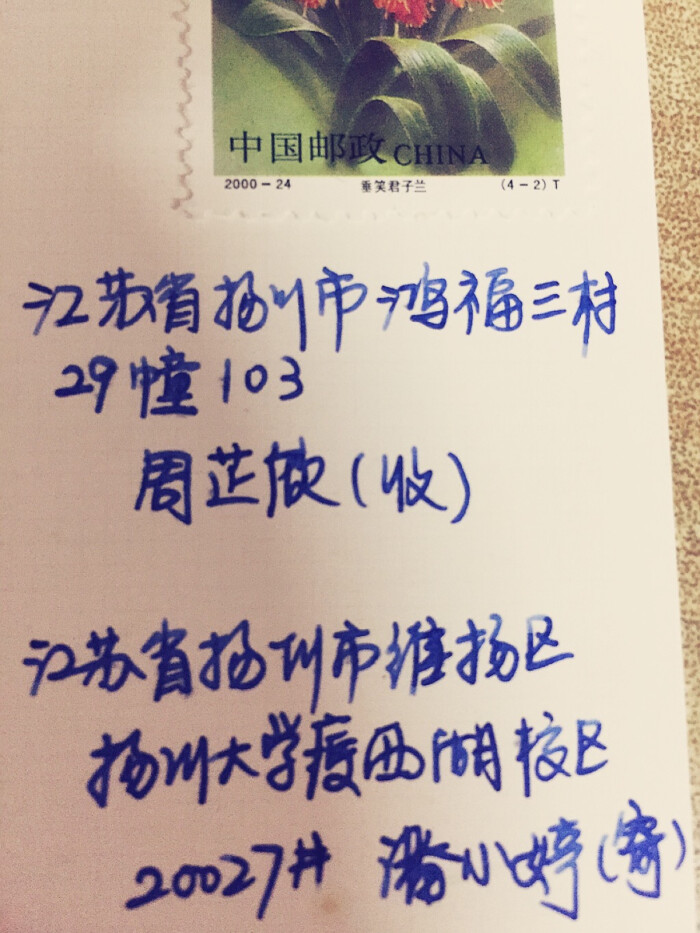 中国邮政 CHINA
2000-24 垂笑君子兰 (4-2)T
江苏省扬州市鸿福三村
29幢103
周芷欣(收)
江苏省扬州市维扬区
扬州大学瘦西湖校区
20027# 潘小婷(寄)